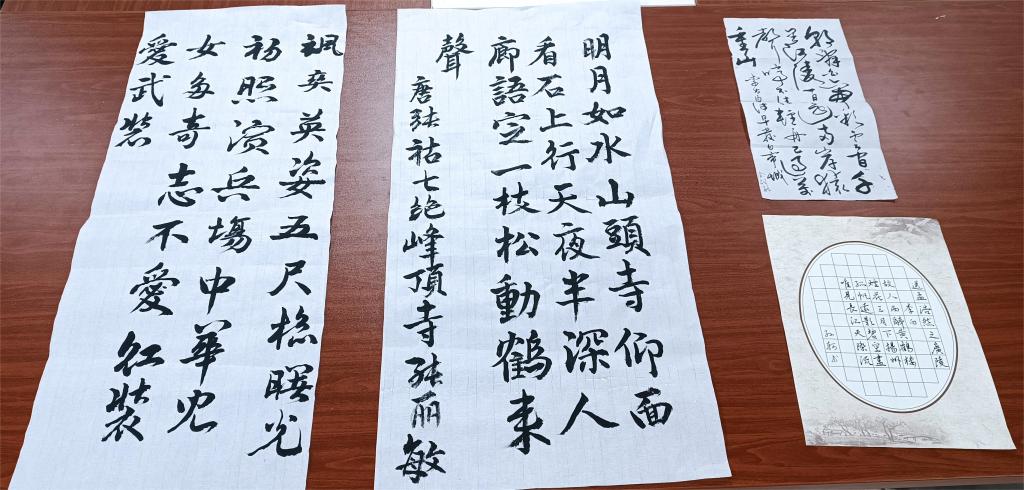 颯爽英姿五尺槍曙光
初照演兵場中華兒
女多奇志不愛紅裝
愛武裝
明月如水山頭寺仰面
看石上行天夜半深人
廊語定一枝松動鶴来
聲
唐張祜七絕峰頂寺張丽敏
朝辭白帝彩雲間千
里江陵一日還兩岸猿
聲啼不住輕舟已過萬
重山
李太白詩早發白帝城
送孟浩然之廣陵
李白
故人西辭黄鶴樓
煙花三月下揚州
孤帆遠影碧空盡
唯見長江天際流